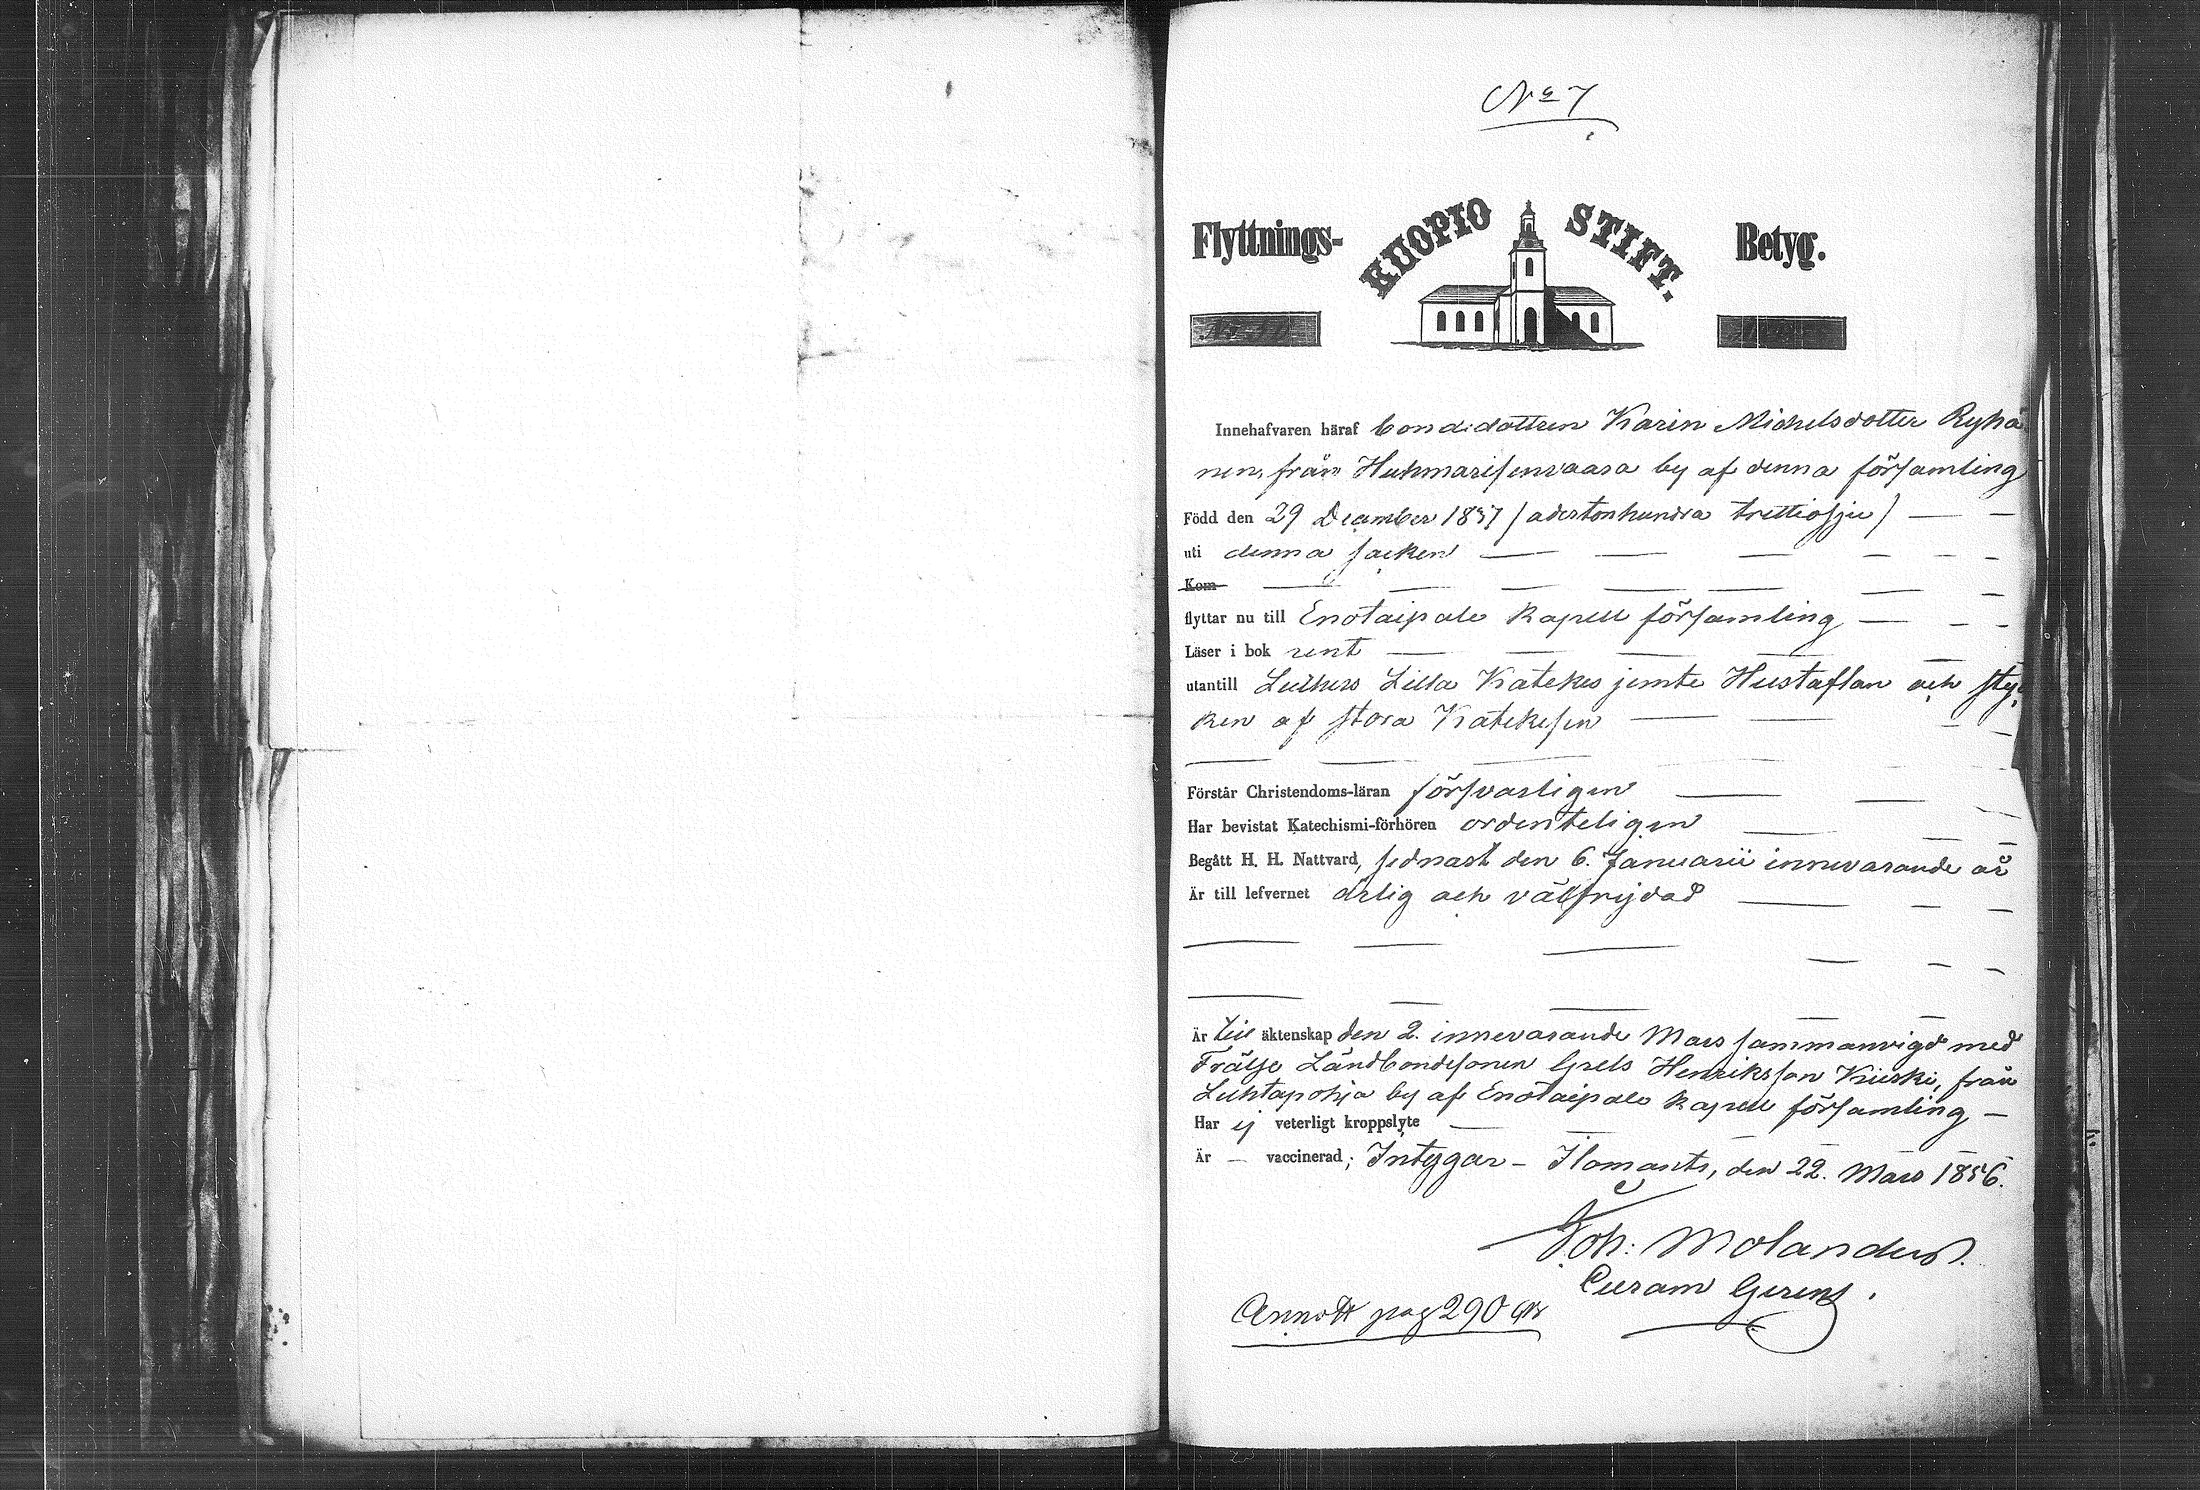 No 7
Flyttnings- KUOPIO STIFT. Betyg.
Innehafvaren häraf bondedottren Karin Michelsdotter Ryhä
nen, från Huhmarisenvaara by af denna församling
Född den 29 December 1837 / adertonhundra trettiosju /
uti denna socken
Kom
flyttar nu till Enotaipale Kapell församling
Läser i bok rent
utantill Luthers Lilla Katekes jemte Hustaflan och styc
ken af stora Katekesen
Förstår Christendoms-läran försvarligen
Har bevistat Katechismi-förhören ordenteligen
Begått H. H. Nattvard, sednast den 6. Januarii innevarande år
Är till lefvernet ärlig och välfrejdad
Är till äktenskap den 2. innevarande Mars sammanvigd med
Frälse Landbondesonen Grels Henriksson Kiiski, från
Luhtapohja by af Enotaipale kapell församling
Har ej veterligt kroppslyte
Är — vaccinerad; Intygar – Ilomants, den 22. Mars 1856.
Joh: Molander
Curam Gerens.
Annott pag 290